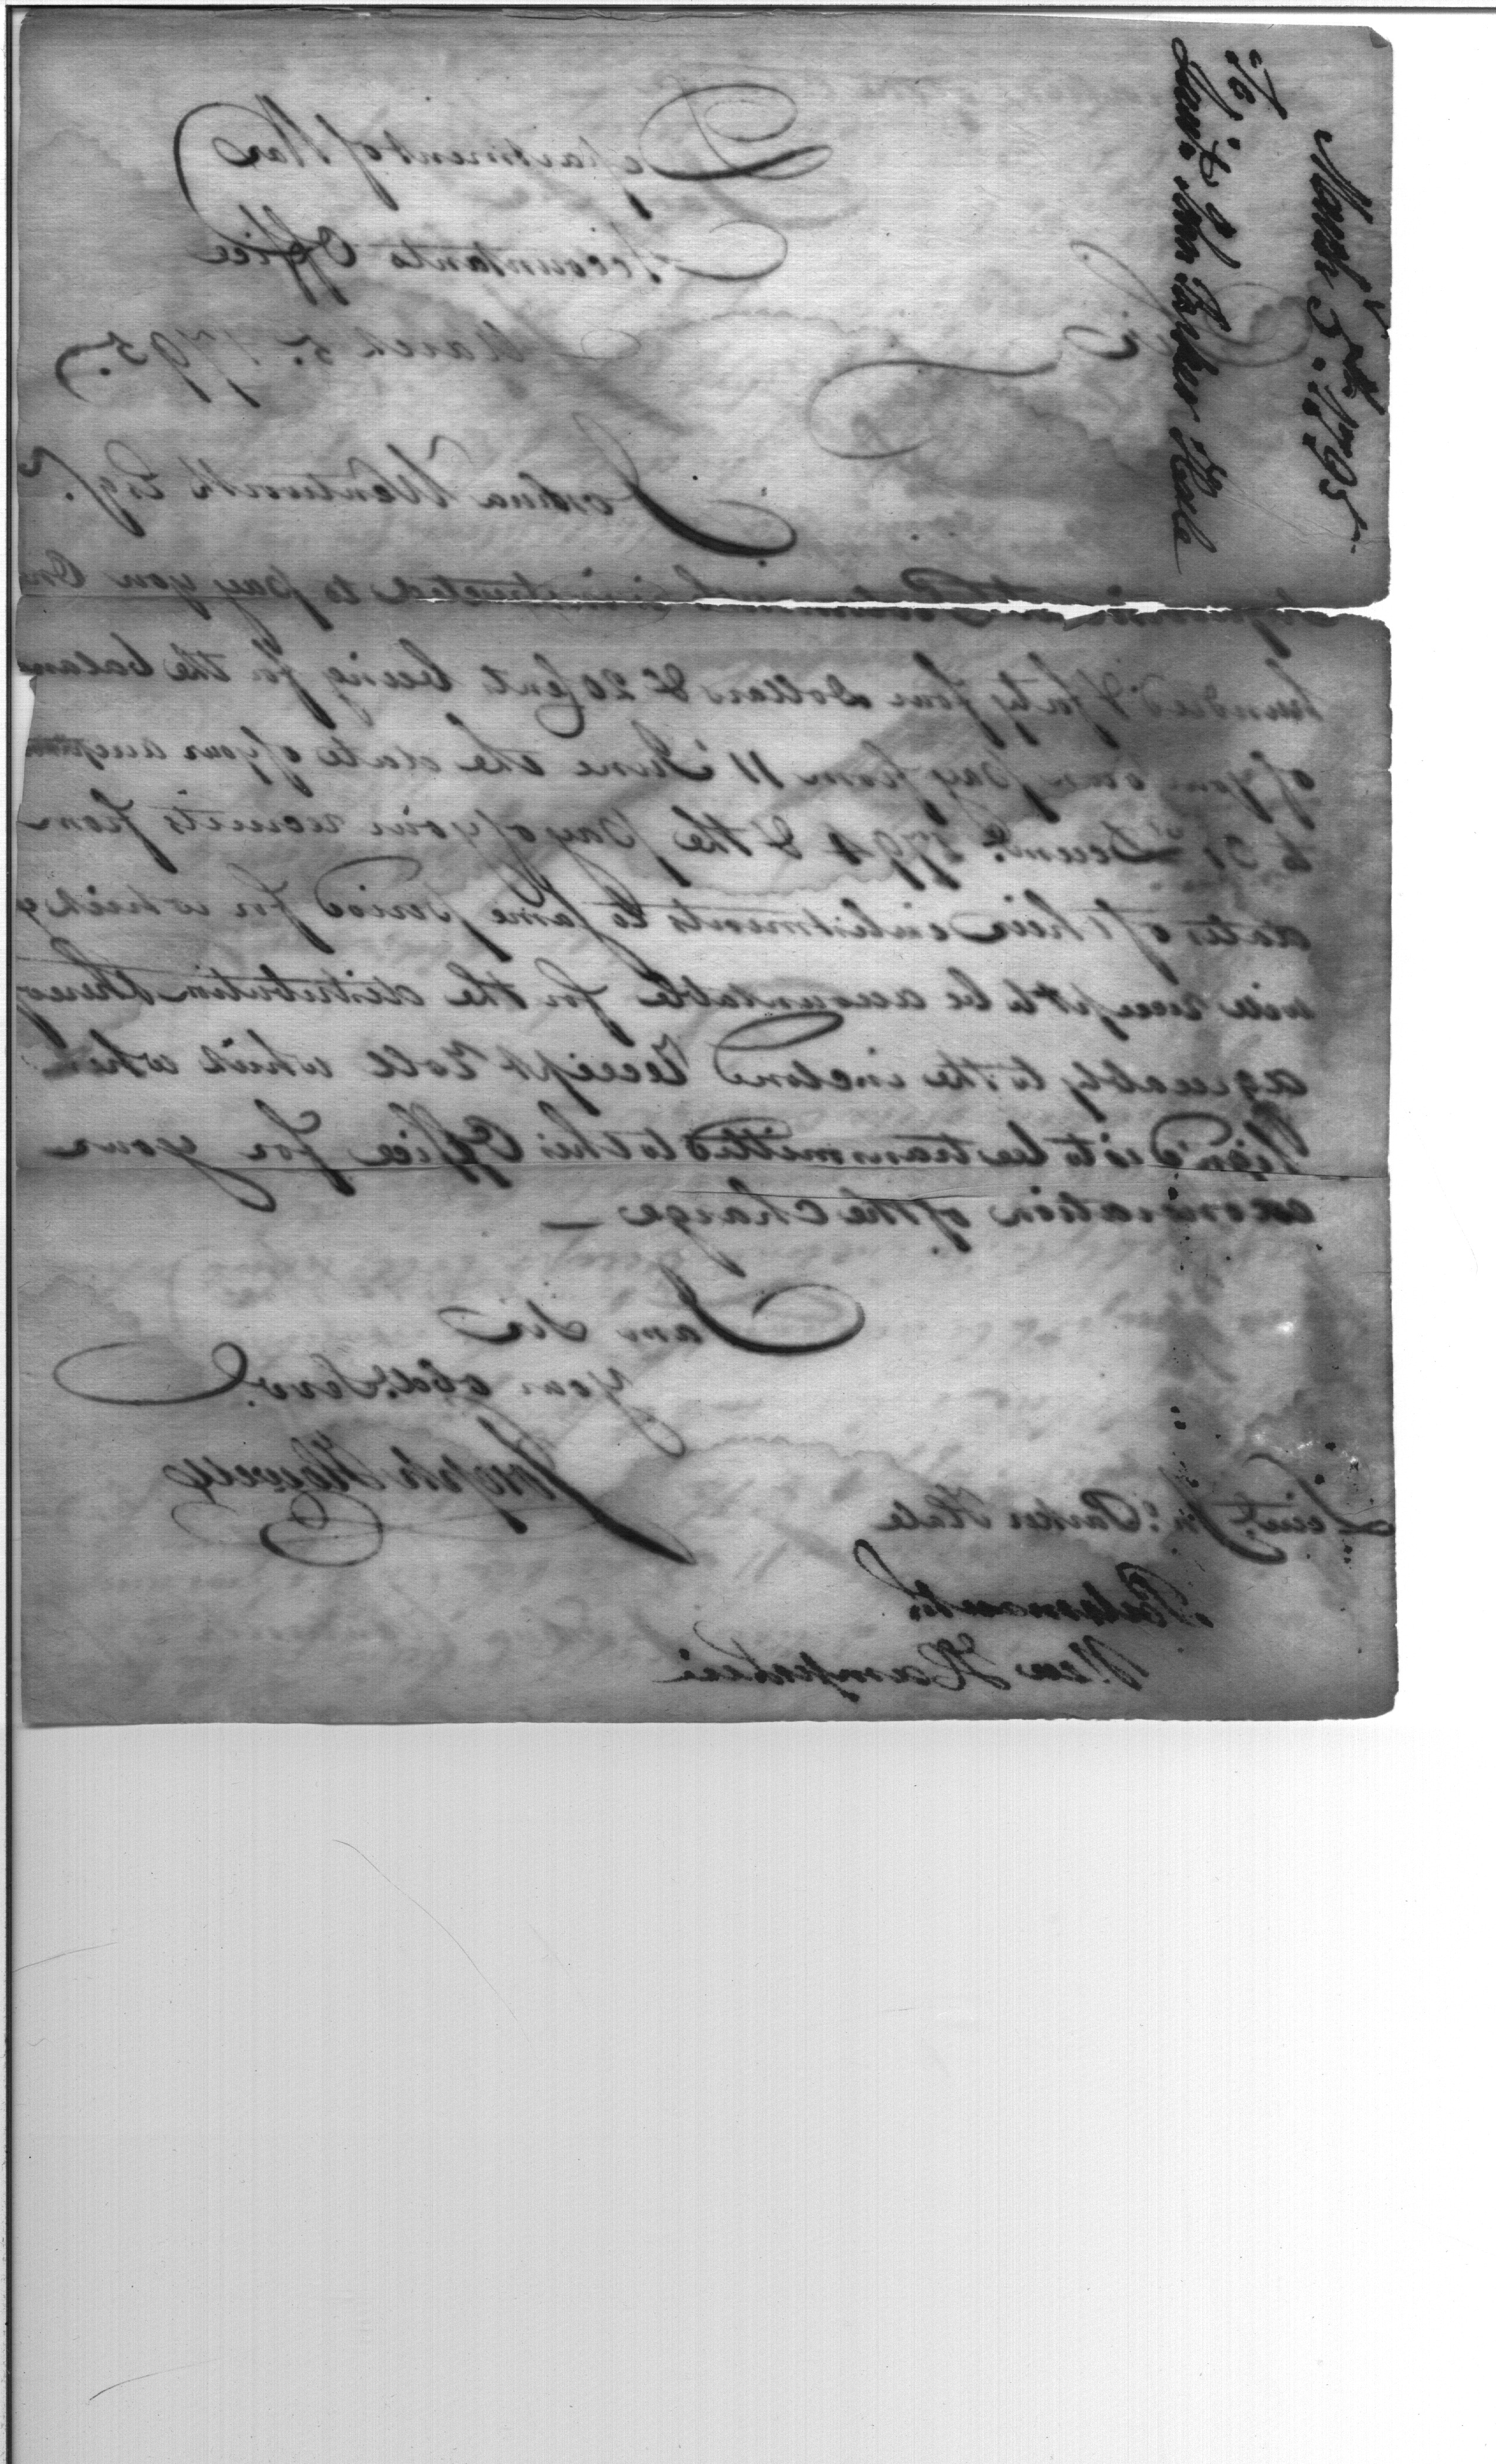 Department of War
Accountants Office
March 5. 1795.
Sir
Joshua Wentworth Esqr.
is instructed to pay you One
hundred & forty four Dollars & 20 Cents being for the balance
of your own pay from 11 June the date of your acceptance
to 31 Decemr. 1794 & the pay of your recruits from
dates of their enlistments to same period for which y
will receipt & be accountable for the distribution thereof
agreeably to the inclosed Receipt Roll which when
Sign'd is to be transmitted to this Office for your
exoneration of the Charge —
I am Sir
your obed. Serv.
Joseph Howell
Lieut. Jn: Parker Hale
Portsmouth
New Hampshire
To
John Parker Hale
March 5th 1795